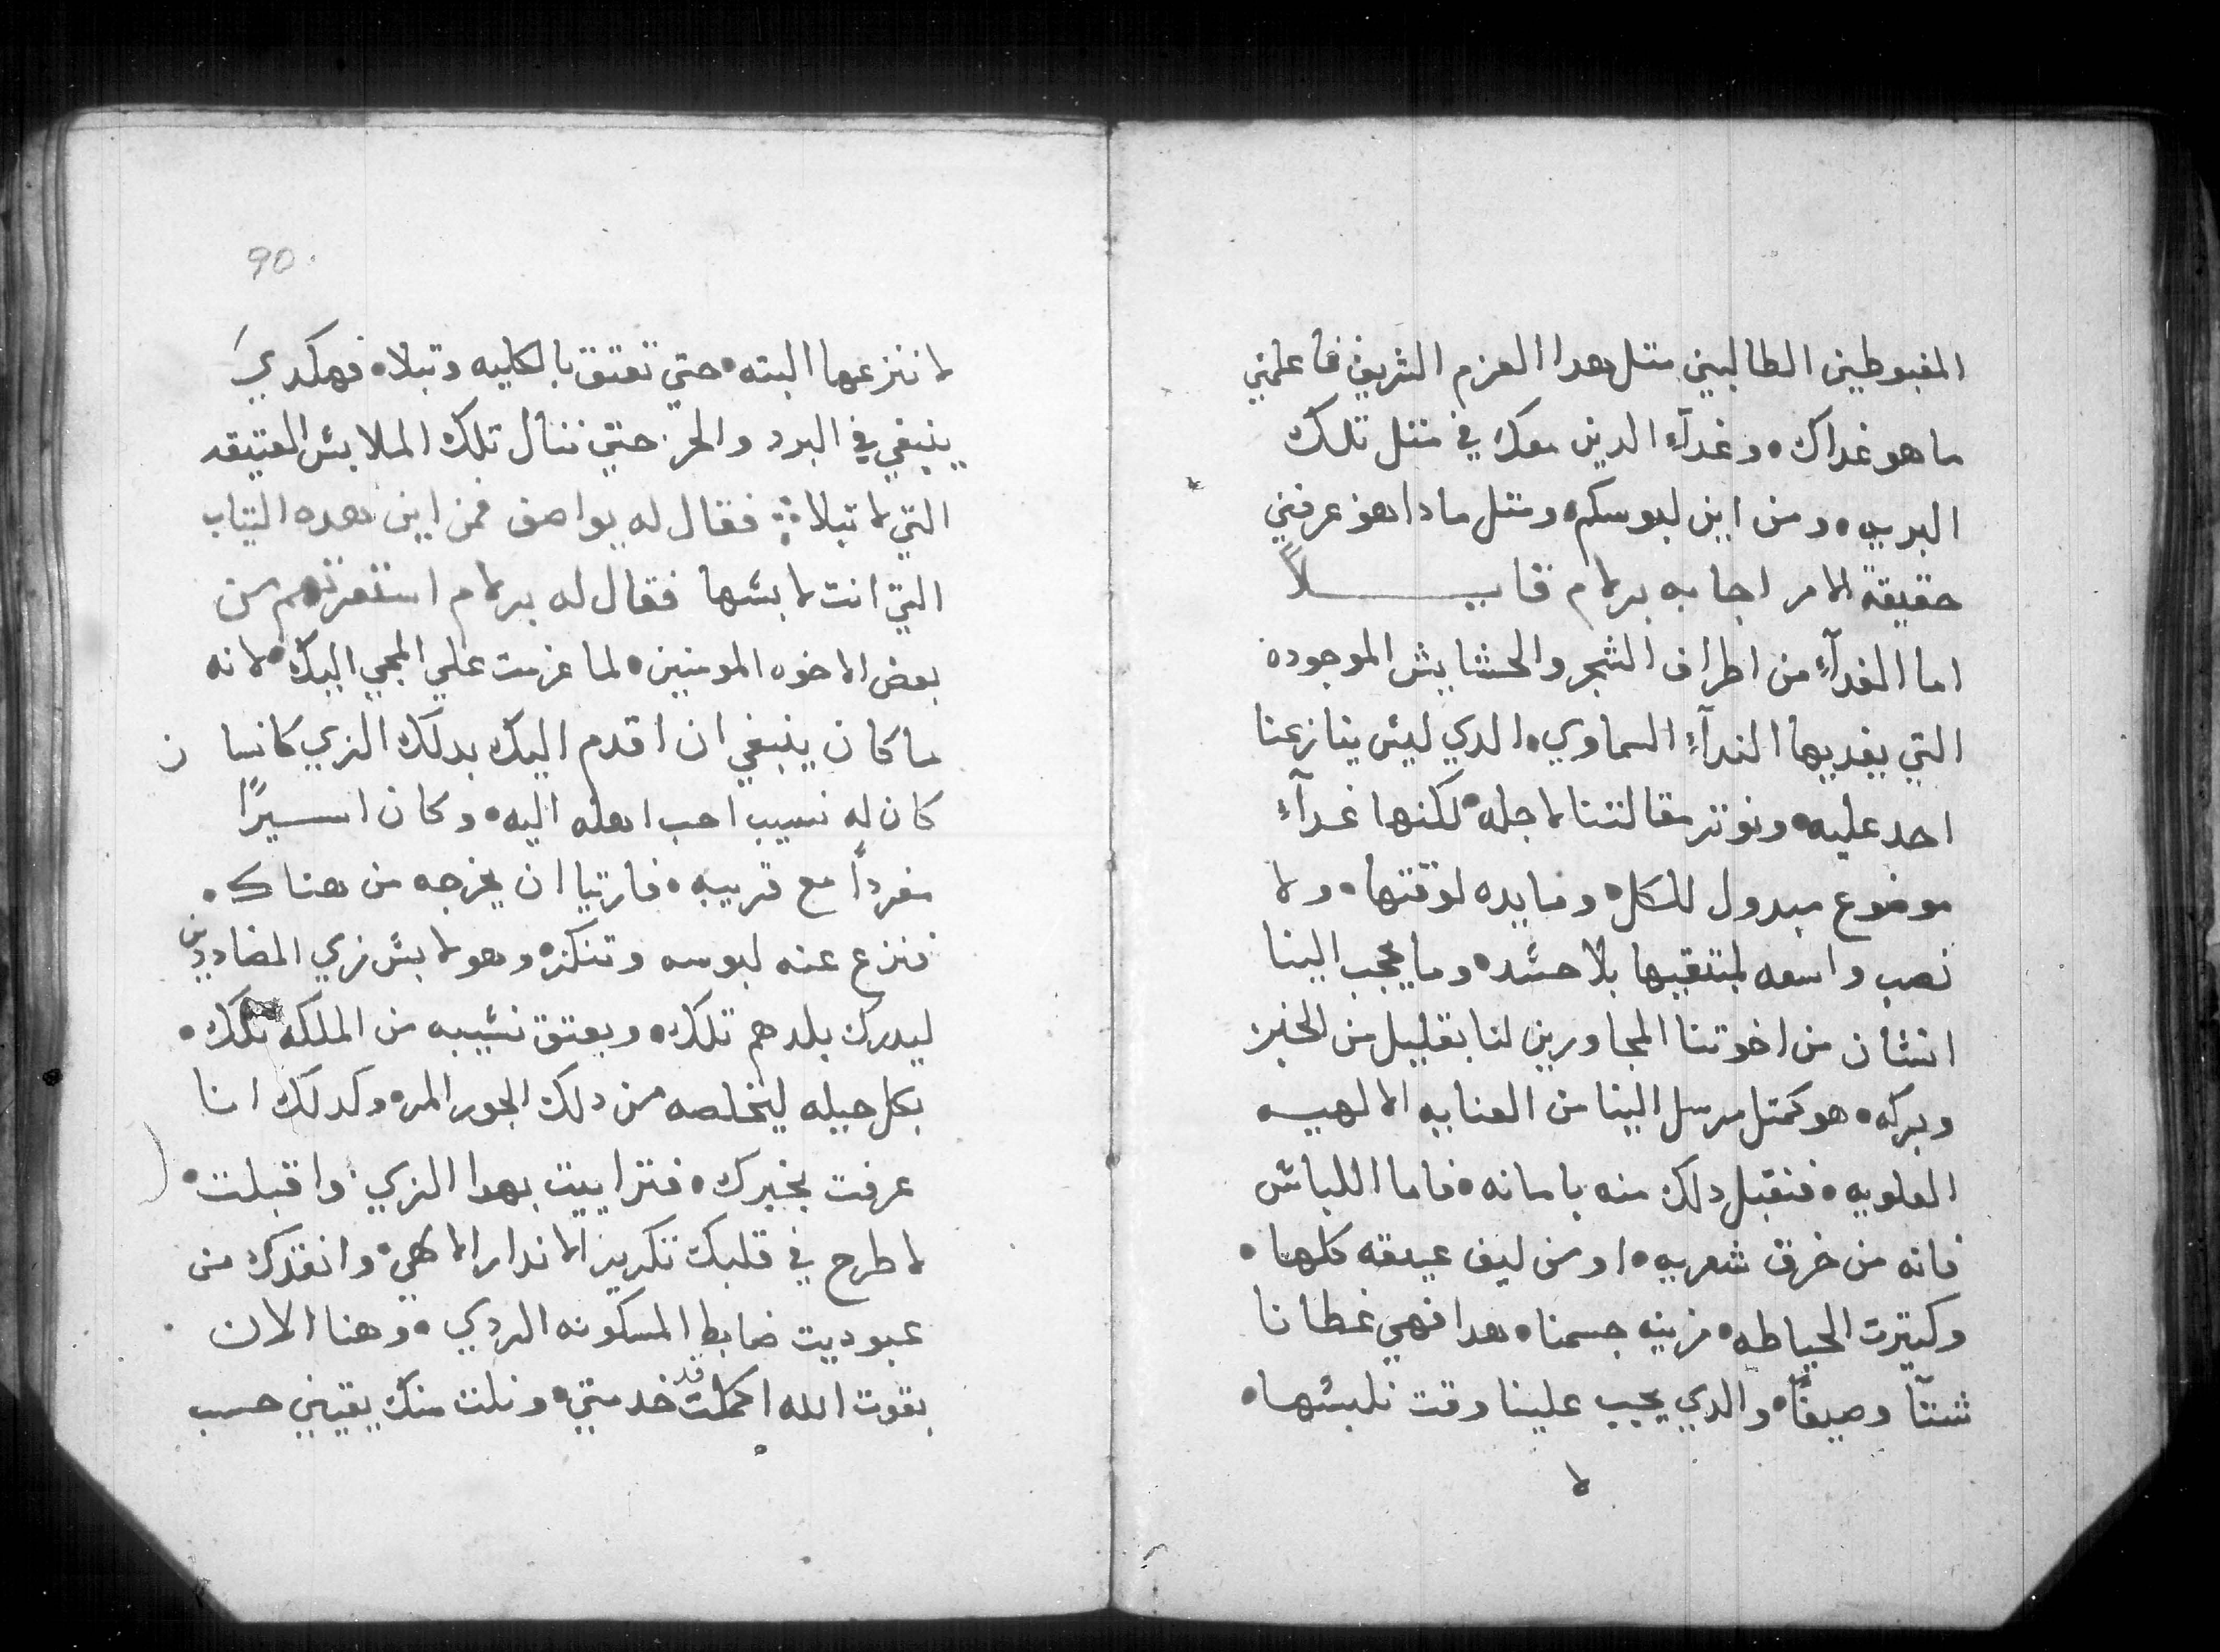 المغبوطين الطالبين متل هدا العزم الشريف فاعلمني
ما هو غداك ٥ وغدآء الدين معك في متل تلك
البريه ٥ ومن اين لبوسكم ٥ ومتل مادا هو عرفني
حقيقة الامر اجابه برلام قايـــلاً
اما الغدآء من اطراف الشجر والحشايش الموجوده
التي يغديها الندآء السماوي ٥ الدي ليس ينازعنا
احد عليه ٥ ونوتر مقالتنا لاجله ٥ لكنها غدآء
موضوع مبدول للكل ٥ ومايده لوقتها ٥ ولا
نصب واسعه لمتنقيها بلا حسد ٥ وما يجب الينا
انشان من اخوتنا المجاورين لنا بقليل من الخبز
وبركه ٥ هو كمتل مرسل الينا من العنايه الالهيه
العلويه ٥ فنقبل دلك منه بامانه ٥ فاما اللباس
فانه من خرق شعريه ٥ او من ليف عيقه كلها ٥
وكتيرت الخياطه ٥ مزينه جسمنا ٥ هدا فهي غطانا
شتآ وصيفًا ٥ والدي يجب علينا وقت نلبسها ٥
لا
90
لا ننزعها البته ٥ حتي تعتق بالكليه وتبلا ٥ فهكدي
ينبغي في البرد والحر حتي ننال تلك الملابس العتيقه
التي لا تبلا ܀ فقال له يواصف فمن اين هده التياب
التي انت لابسها فقال له برلام استعرتهم من
بعض الاخوه المومنين ٥ لما عزمت علي المجي اليك ٥ لانه
ما كان ينبغي ان اقدم اليك بدلك الزي كانسا ن
كان له نسيب احب اهله اليه ٥ وكان اسيرًا
مفردًا مع قريبه ٥ فارتيا ان يخرجه من هناك ٥
فنزع عنه لبوسه وتنكر ٥ وهو لابس زي المضاددين
ليدرك بلدهم تلك ٥ ويعتق نسيبه من الملكه تلك ٥
بكل حيله ليخلصه من دلك الجور المر ٥ وكدلك انا
عرفت بخبرك ٥ فتزاييت بهدا الزي ٥ واقبلت ٥
لا طرح في قلبك تكريز الاندار الالهي ٥ وانقدك من
عبوديت ضابط المسكونه الردي ٥ وهنا الان
بقوت الله قد اكملت خدمتي ٥ ونلت منك يقيني حسب